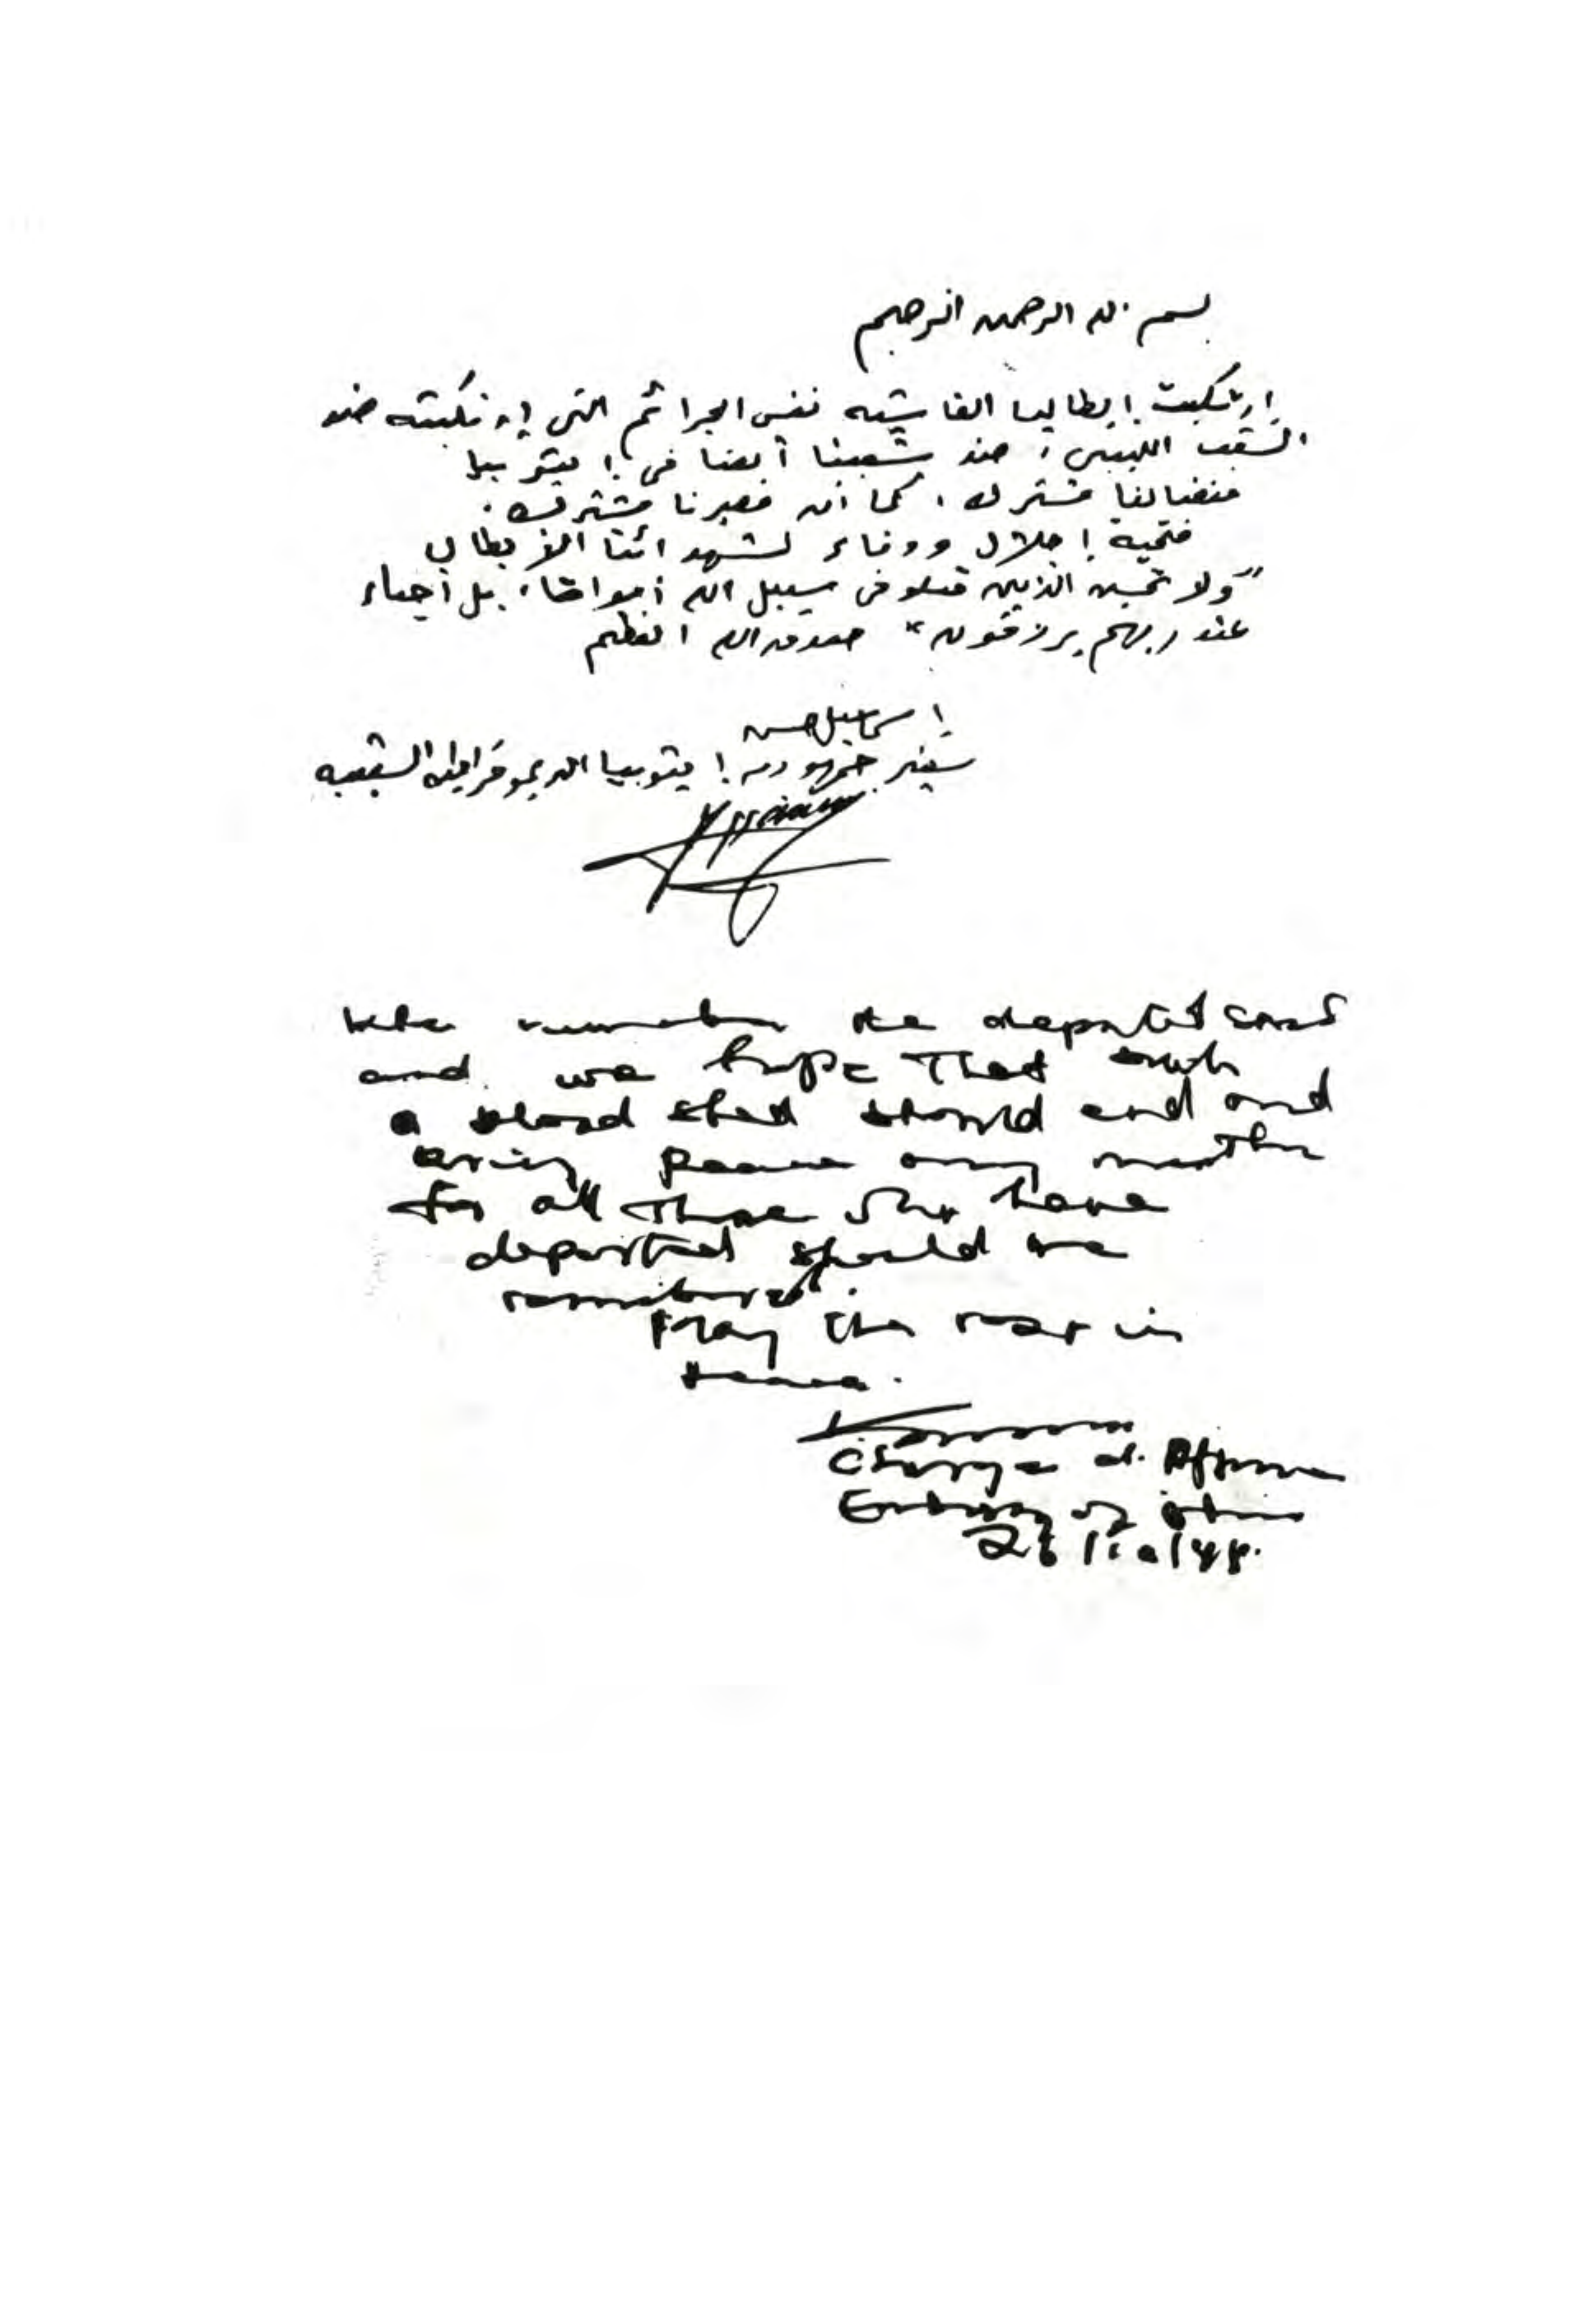 بسم الله الرحمن الرحيم
إرتكبت إيطاليا الفاشيه نفس الجرائم التى إرتكبته ضد
الشعب الليبى، ضد شعبنا أيضا فى إيتوبيا
فنضالنا مشترك، كما أن مصيرنا مشترك.
فتحية إجلال ووفاء لشهدائنا الأبطال
"ولا تحسبن الذين قتلو فى سبيل الله أمواتا، بل أحياء
عند ربهم يرزقون" صدق الله العظيم
إسماعيل حسن
سفير جمهوريه إيتوبيا الديموقراطيه الشعبيه
We remember the departed souls
and we hope that such
a blood shed should end and
bring peace
for all those who have
departed should be
remembered.
Pray the rest in
Peace.
Charge d. Affaire
Embassy of
26/10/88.